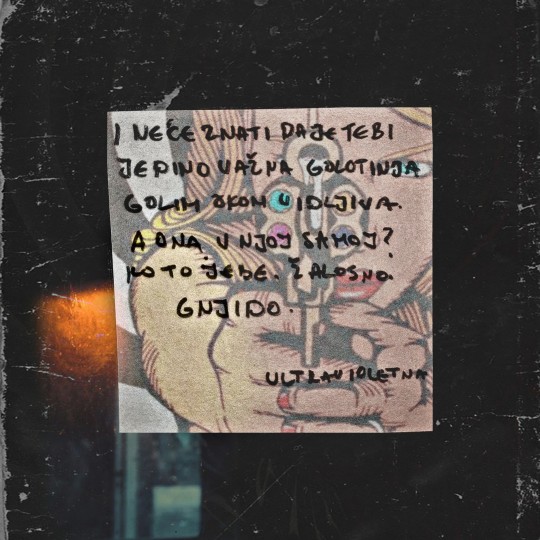 I NEĆE ZNATI DA JE TEBI
JEDINO VAŽNA GOLOTINJA
GOLIM OKOM VIDLJIVA.
A ONA U NJOJ SAMOJ?
KO TO JEBE. ŽALOSNO.
GNJIDO.
ULTRAVIOLETNA